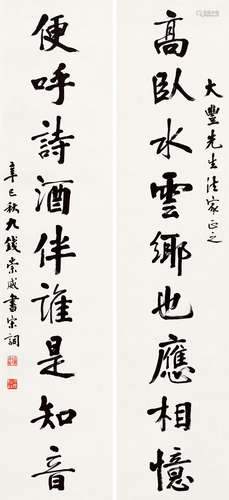 大豐先生法家正之
高臥水雲鄉也應相憶
便呼詩酒伴誰是知音
辛巳秋九錢崇威書宋詞